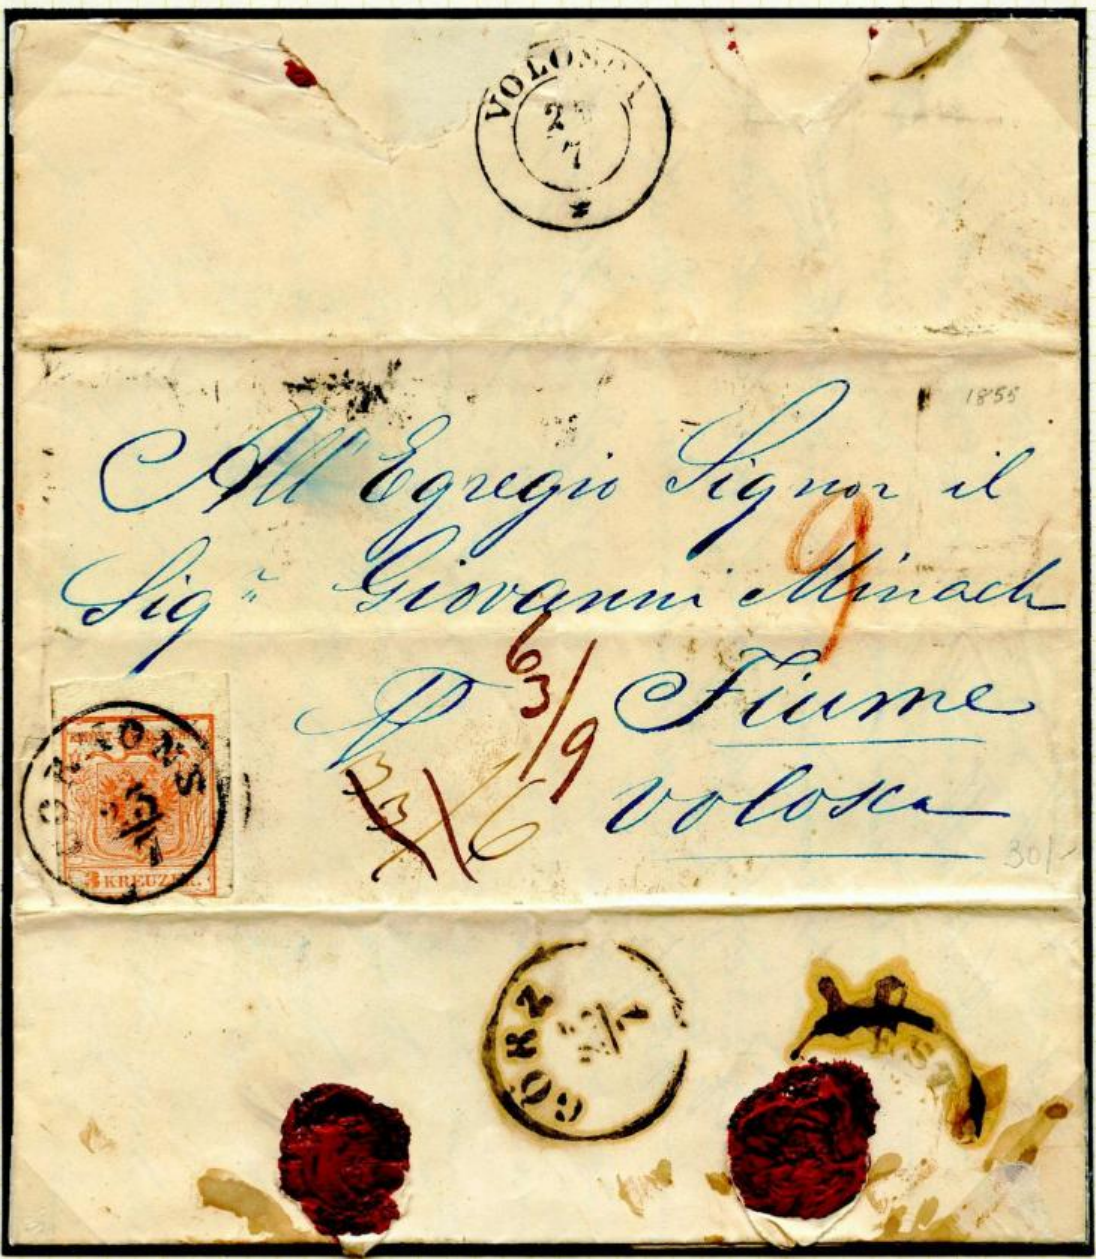 VOLOSCA
7
1855
All' Egregio Signor il
Sigr Giovanni Minach
9
6
3/9
Fiume
volosca
3
3/6
CORMONS
23/7
3 KREUZER.
30/-
GÖRZ